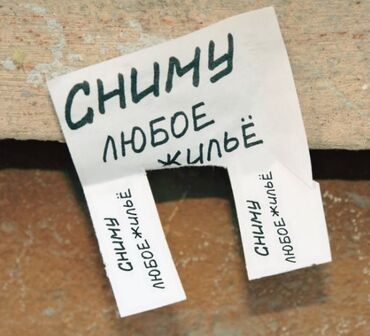 СНИМУ
ЛЮБОЕ
ЖИЛЬЁ
СНИМУ
ЛЮБОЕ ЖИЛЬЁ
СНИМУ
ЛЮБОЕ ЖИЛЬЁ